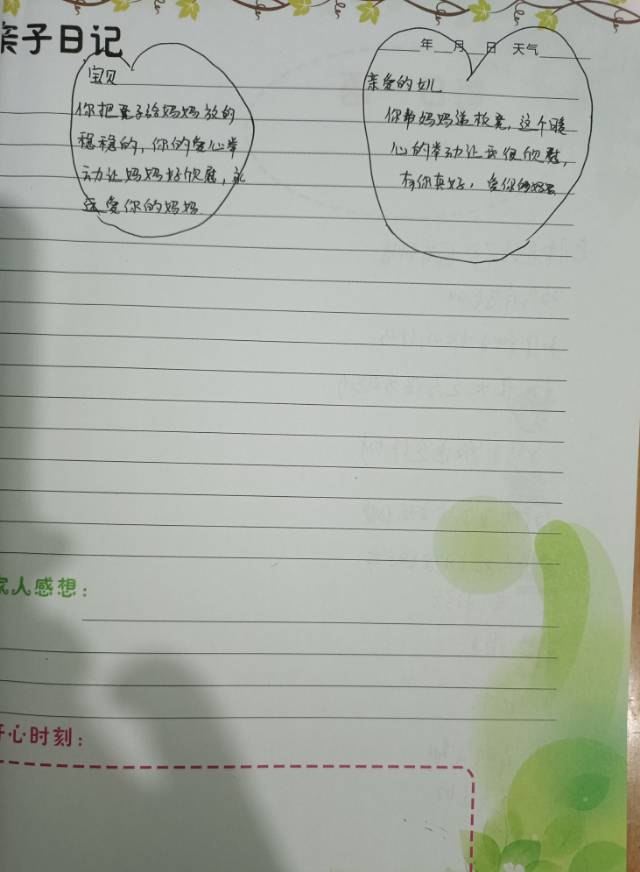 亲子日记
年 月 日 天气
宝贝
你把凳子给妈妈放的
稳稳的,你的爱心举
动让妈妈好欣慰,永
远爱你的妈妈
亲爱的女儿
你帮妈妈递板凳,这个暖
心的举动让我很欣慰,
有你真好,爱你的妈妈
家人感想:
开心时刻: